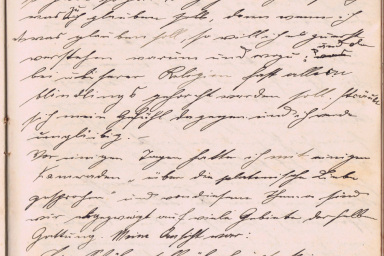 was ich glauben soll, denn wenn ich
etwas glauben soll, so will ich es zuerst
verstehen warum und wozu; und da
bei unserer Religion fast allem
blindlings gehorcht werden soll, sträubt
sich mein Gefühl dagegen und ich werde
ungläubig. —
Vor einigen Tagen hatte ich mit einigen
Kameraden „über die platonische Liebe
gesprochen" und von diesem Thema sind
wir abgezweigt auf viele Gebiete derselben
Gattung. Meine Ansicht war: